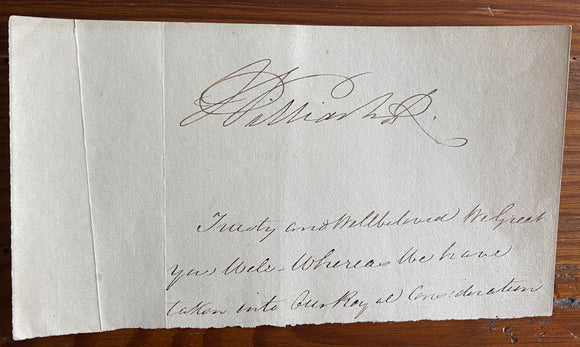 William R.
Trusty and Wellbeloved We Greet
you Well - Whereas We have
taken into Our Royal Consideration